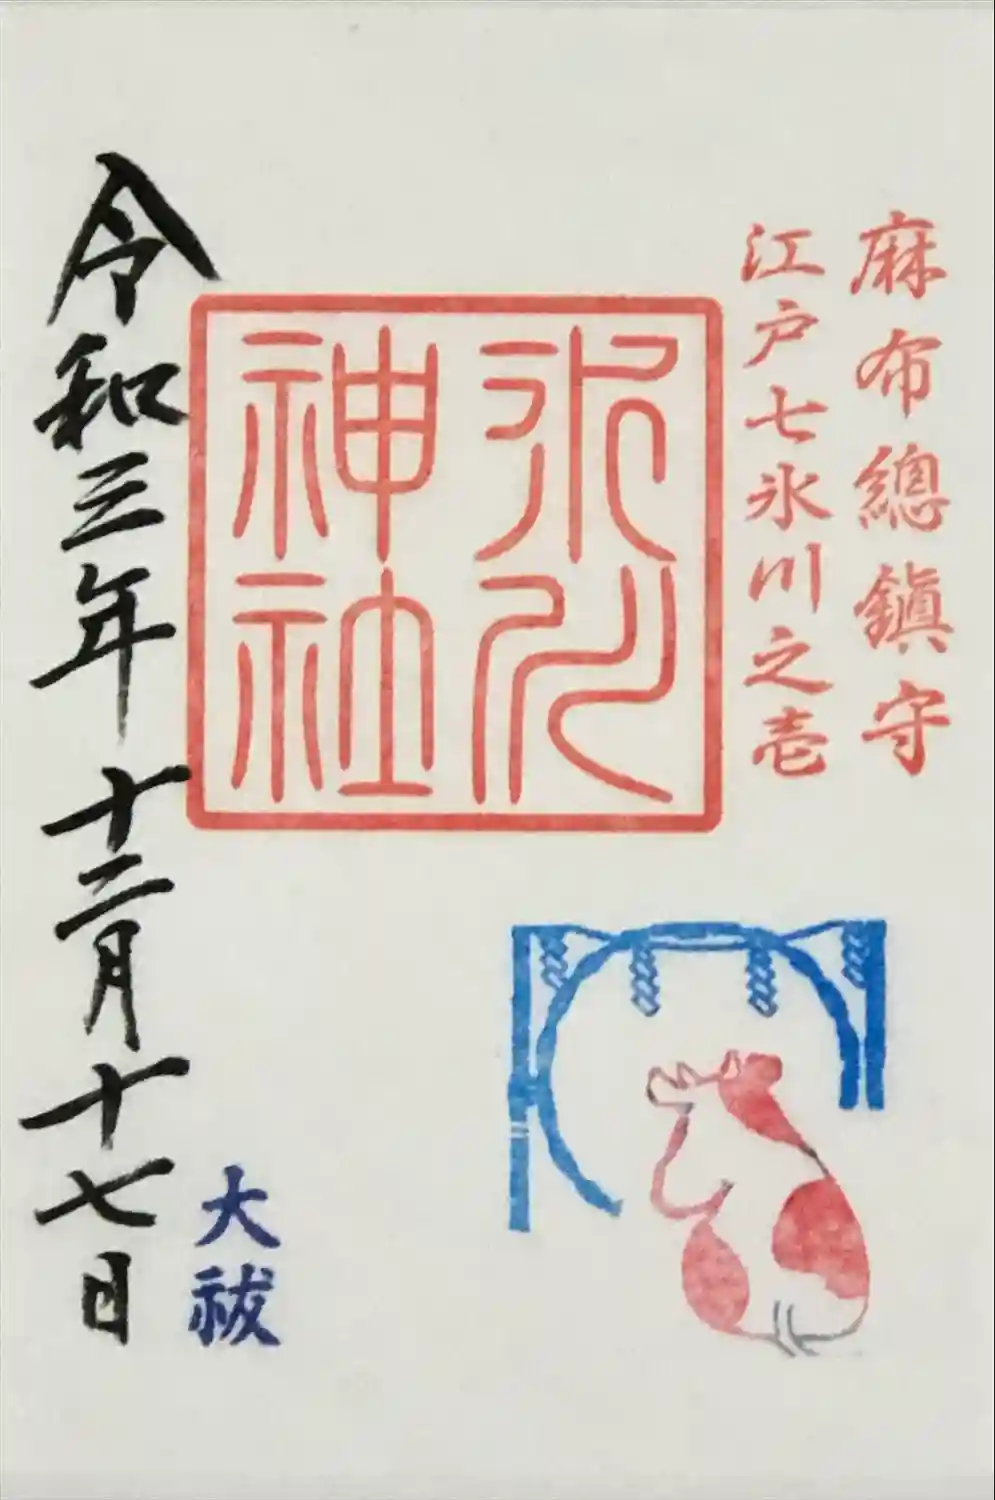 麻布總鎮守
江戸七氷川之壱
氷川
神社
大祓
令和三年十二月十七日